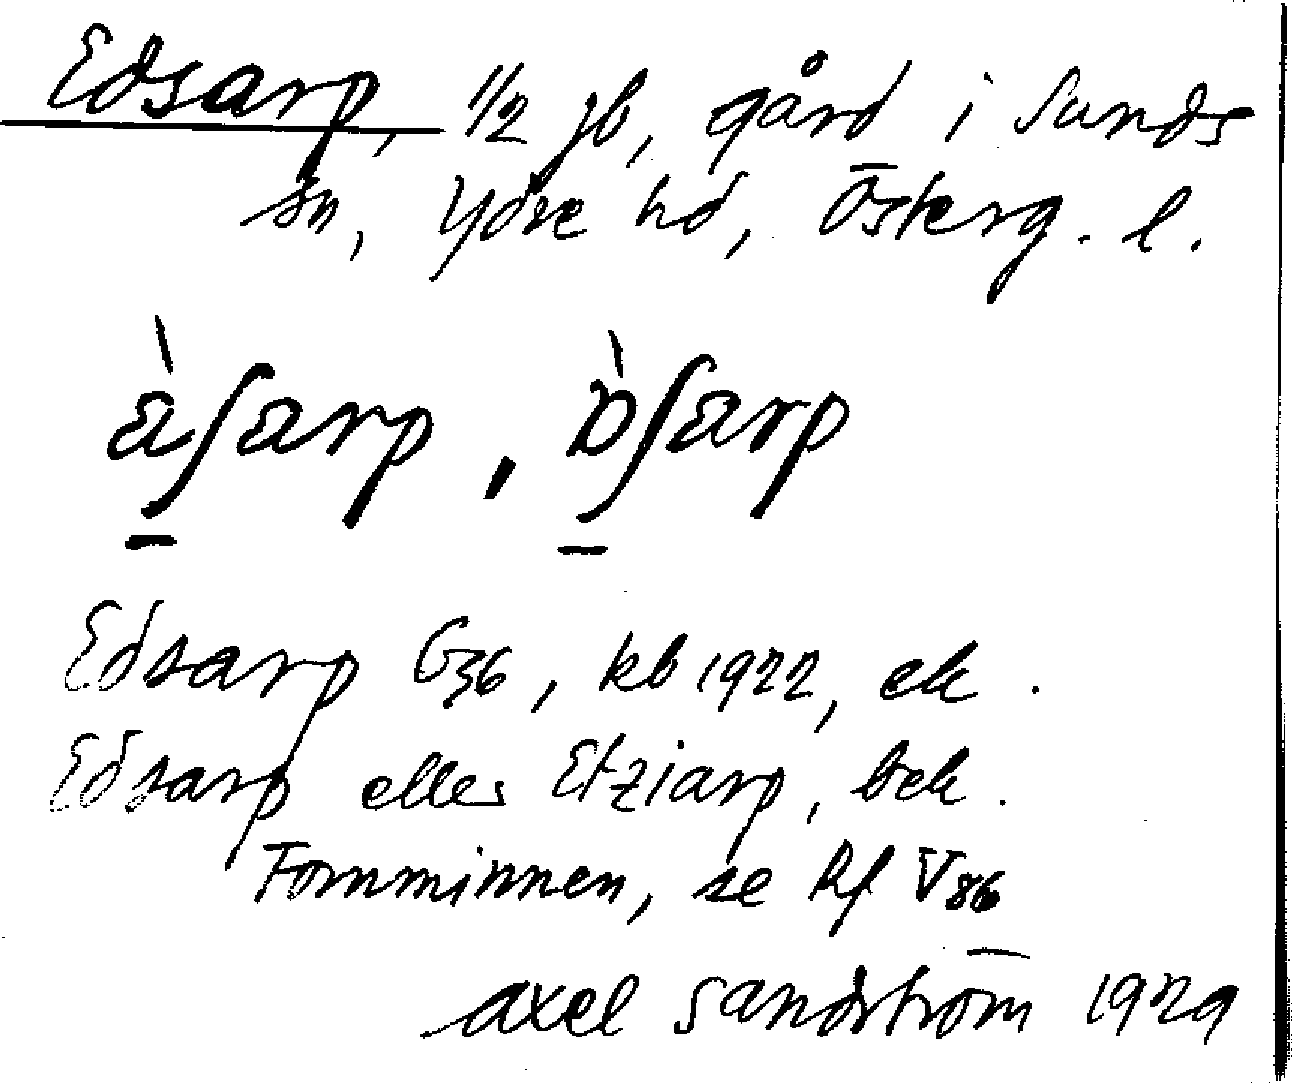 Edsarp, 1/2 jb, gård i Sunds
sn, Ydre hd, Österg. l.
Edsarp G36, kb 1922, ek.
Edsarp eller Etziarp, bek.
Fornminnen, se Rf V86
Axel Sandström 1929